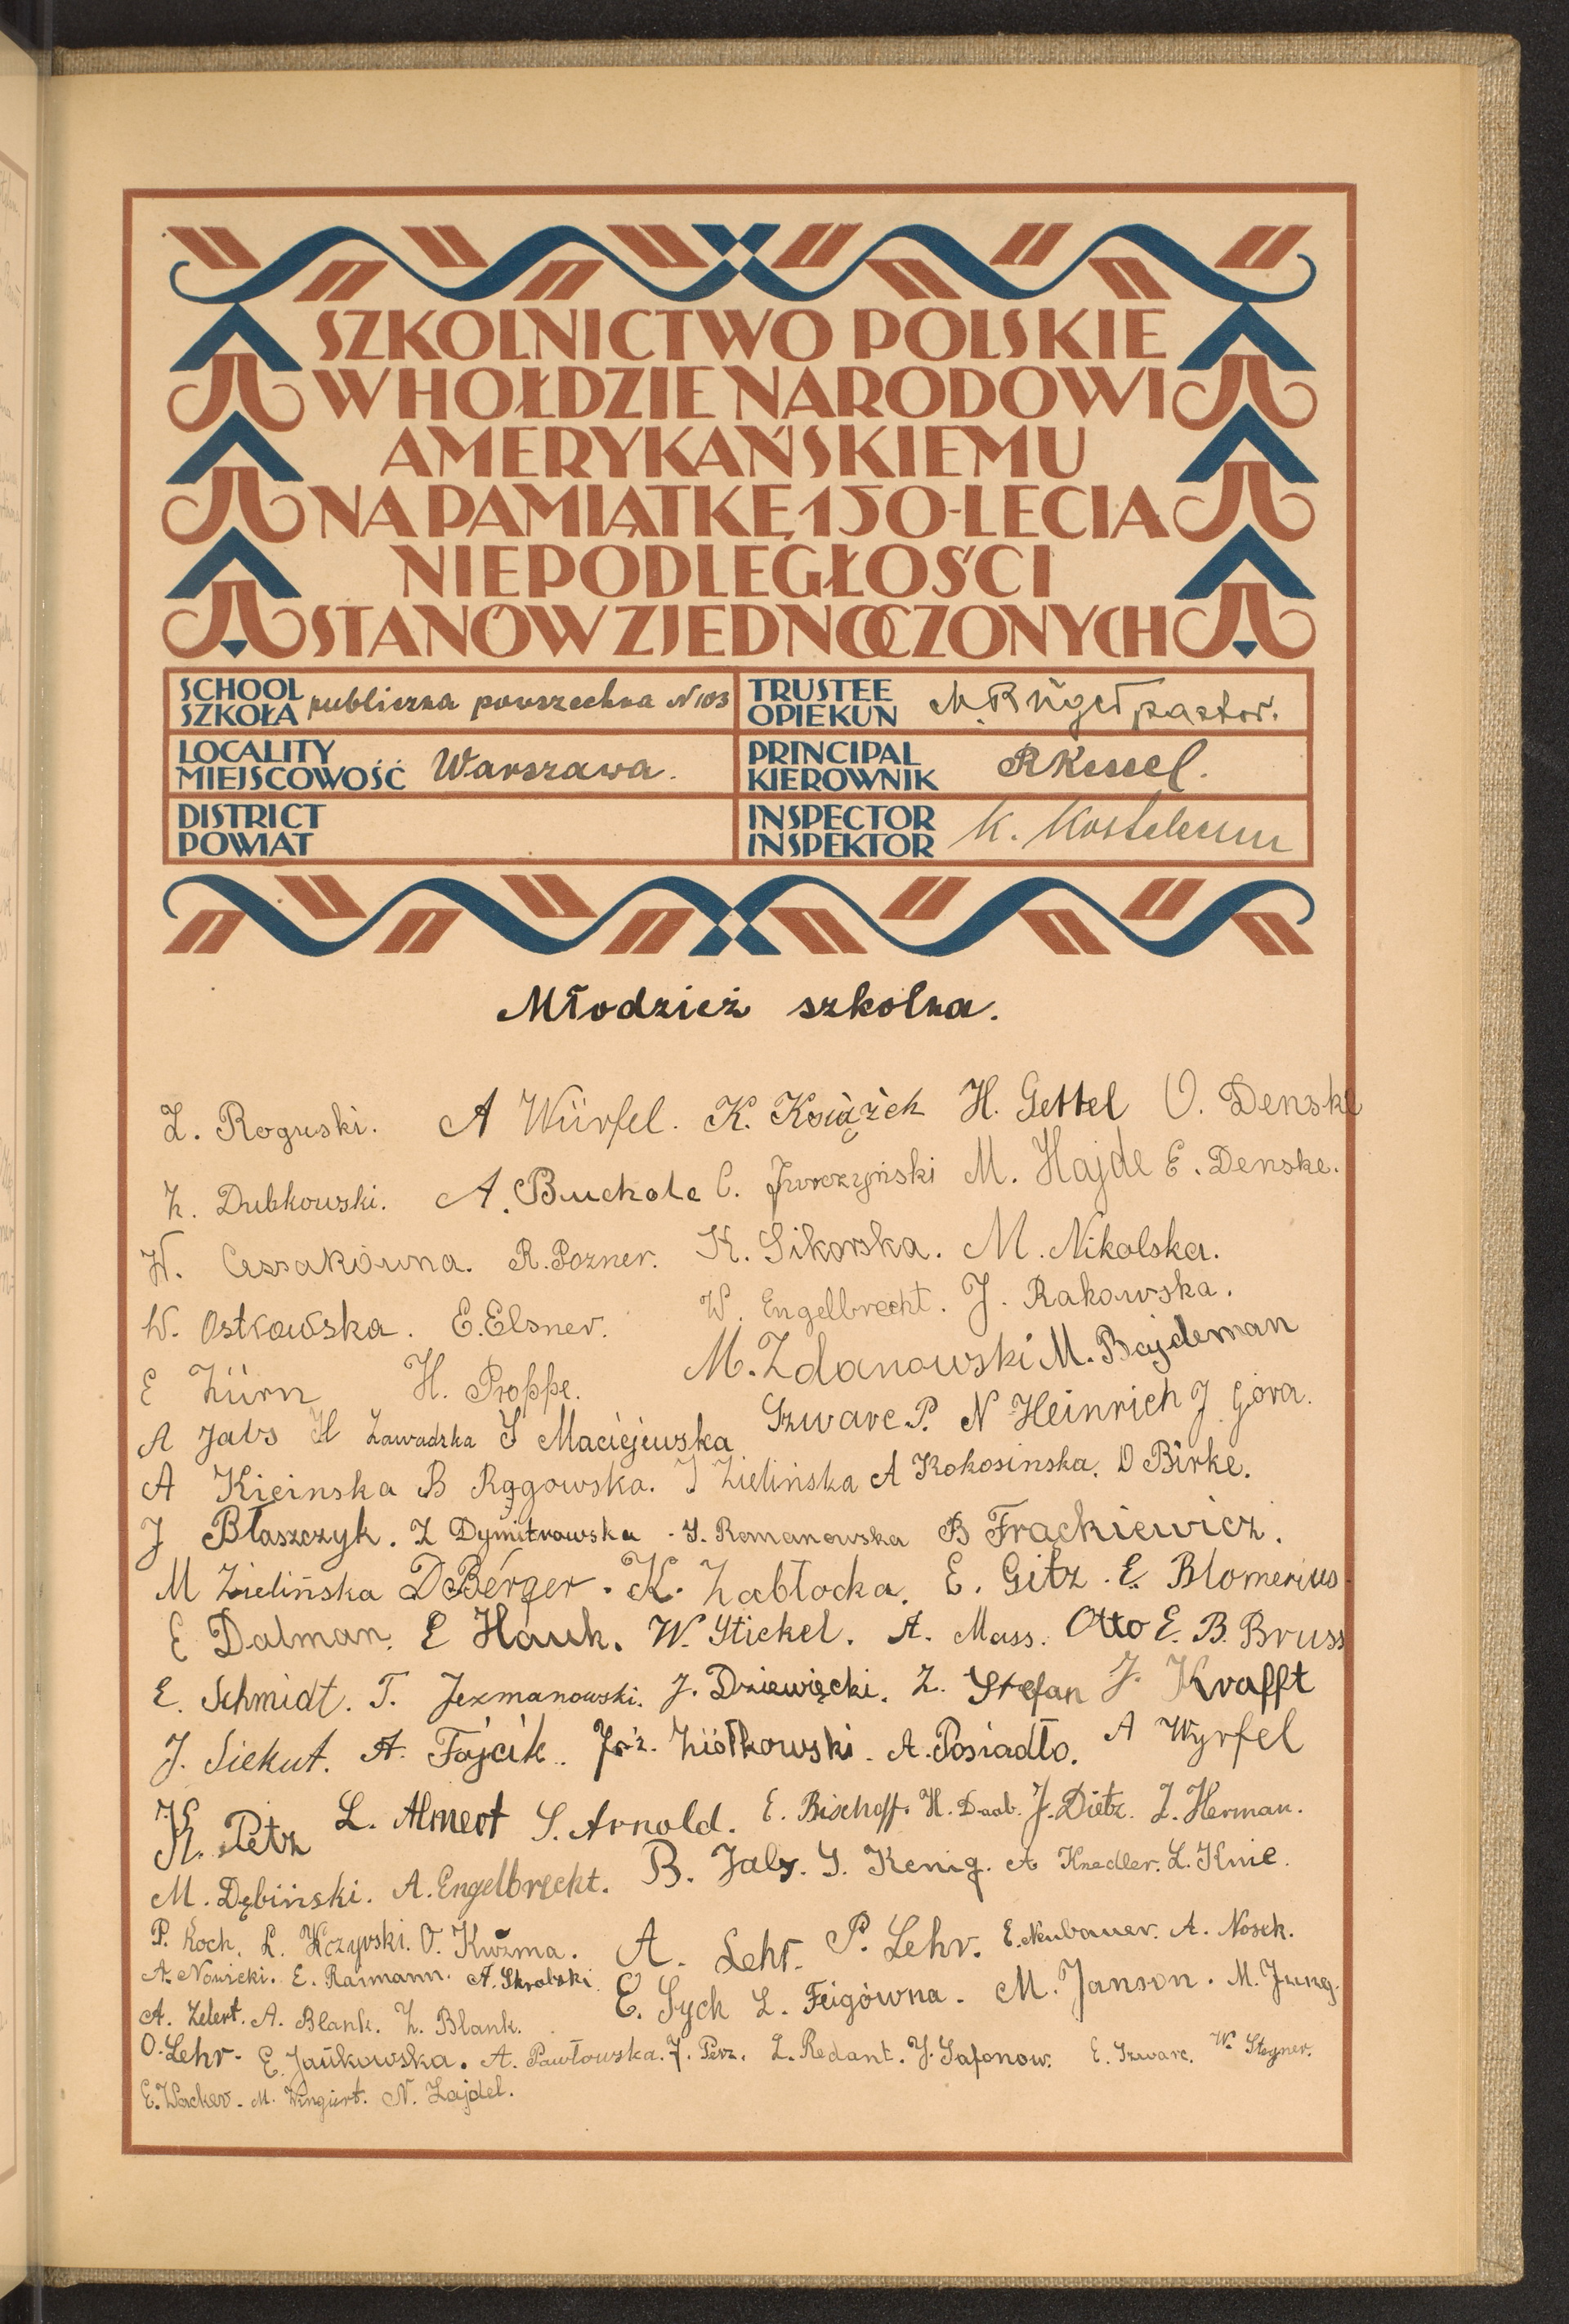 SZKOLNICTWO POLSKIE
W HOŁDZIE NARODOWI
AMERYKAŃSKIEMU
NA PAMIĄTKĘ 150-LECIA
NIEPODLEGŁOŚCI
STANÓW ZJEDNOCZONYCH
SCHOOL SZKOŁA publiczna powszechna N 103
TRUSTEE OPIEKUN pastor.
LOCALITY MIEJSCOWOŚĆ Warszawa.
PRINCIPAL KIEROWNIK
DISTRICT POWIAT
INSPECTOR INSPEKTOR K.
Młodzież szkolna.
Z. Roguski. A Würfel. K. Książek H. Gettel O. Denske
Z. Dubkowski. A. Buchole C. Jurczyński M. Hajde E. Denske.
W. R. Pozner. K. Sikorska. M. Nikolska.
W. Ostrowska. E. Elsner. W. Engelbrecht. J. Rakowska.
E Zürn H. Proppe. M. Zdanowski M. Bajdeman
A Jabs H Zawadzka J Maciejewska Szwarc P. N Heinrich J Góra.
A Kicinska B Rągowska. J Zielińska A Kokosinska. O Birke.
J Błaszczyk. Z Dymitrowska. J. Romanowska B Frąckiewicz.
M Zielińska D Berger. K. Zabłocka. E. Gitz. E. Blomerius.
E Dalman. E Hauk. W. Stickel. A. Mass. Otto E. B. Bruss
E. Schmidt. T. Jezmanowski. J. Dziewięcki. Z. Stefan J. Krafft
J. Siekut. A. Fajcik. Ziółkowski. A. Posiadło. A Wyrfel
K. Petz L. Almert S. Arnold. E. Bischoff. H. Daab. J. Dietz. Z. Herman.
M. Dębiński. A. Engelbrecht. B. Jabs. G. Kenig. A Knedler. L. Knie.
P. Koch. L. O. Kuzma. A. Lehr. P. Lehr. E. Neubauer. A. Nosek.
A. Nowicki. E. Raimann. A. Skrobski. E. Sych Z. Feigówna. M. Janson. M. Jung.
A. Zelert. A. Blank. Z. Blank.
O. Lehr. E. Jankowska. A. Pawłowska. J. Perz. L. Redant. J. Safonow. E. Szwarc. W. Stegner.
E. Wacker. M. Wingert. N. Zajdel.